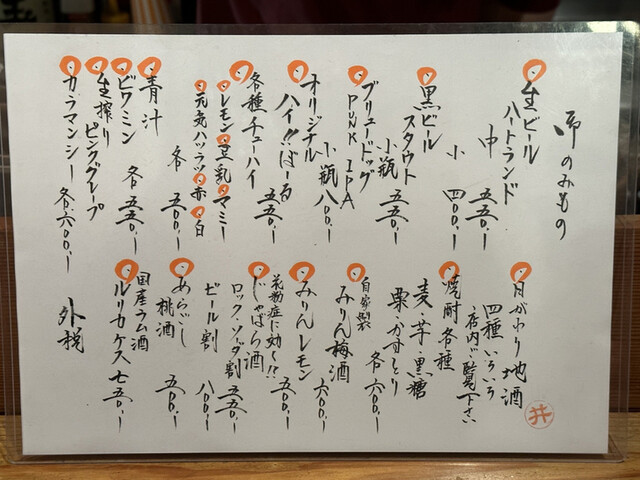 御のみもの
生ビール
ハートランド
中 五五〇.-
小 四〇〇.-
黒ビール
スタウト
小瓶 五五〇.-
ブリュードッグ
PUNK IPA
小瓶 八〇〇.-
オリジナル
ハイ!!ぼーる
五五〇.-
各種チューハイ
レモン 豆乳 マミー
元気ハツラツ 赤 白
各 五五〇.-
青汁
各 五〇〇.-
ビワミン
各 五五〇.-
生搾り
ピンクグレープ
カラマンシー 各六〇〇.-
日がわり地酒
四種いろいろ
店内ご覧下さい
焼酎各種
麦・芋・黒糖
栗・かすとり
各六〇〇.-
自家製
みりん梅酒
六〇〇.-
みりんレモン
五〇〇.-
花粉症に効く〜!!
じゃばら酒
ロック・ソーダ割
五五〇.-
ビール割
八〇〇.-
あらごし
桃酒
五〇〇.-
国産ラム酒
ルリカケス 七五〇.-
外税
井